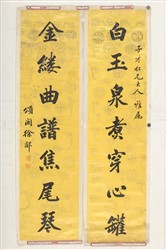 子才仁兄大人雅屬
白玉泉煮穿心罐
金縷曲譜焦尾琴
頌閣徐郙